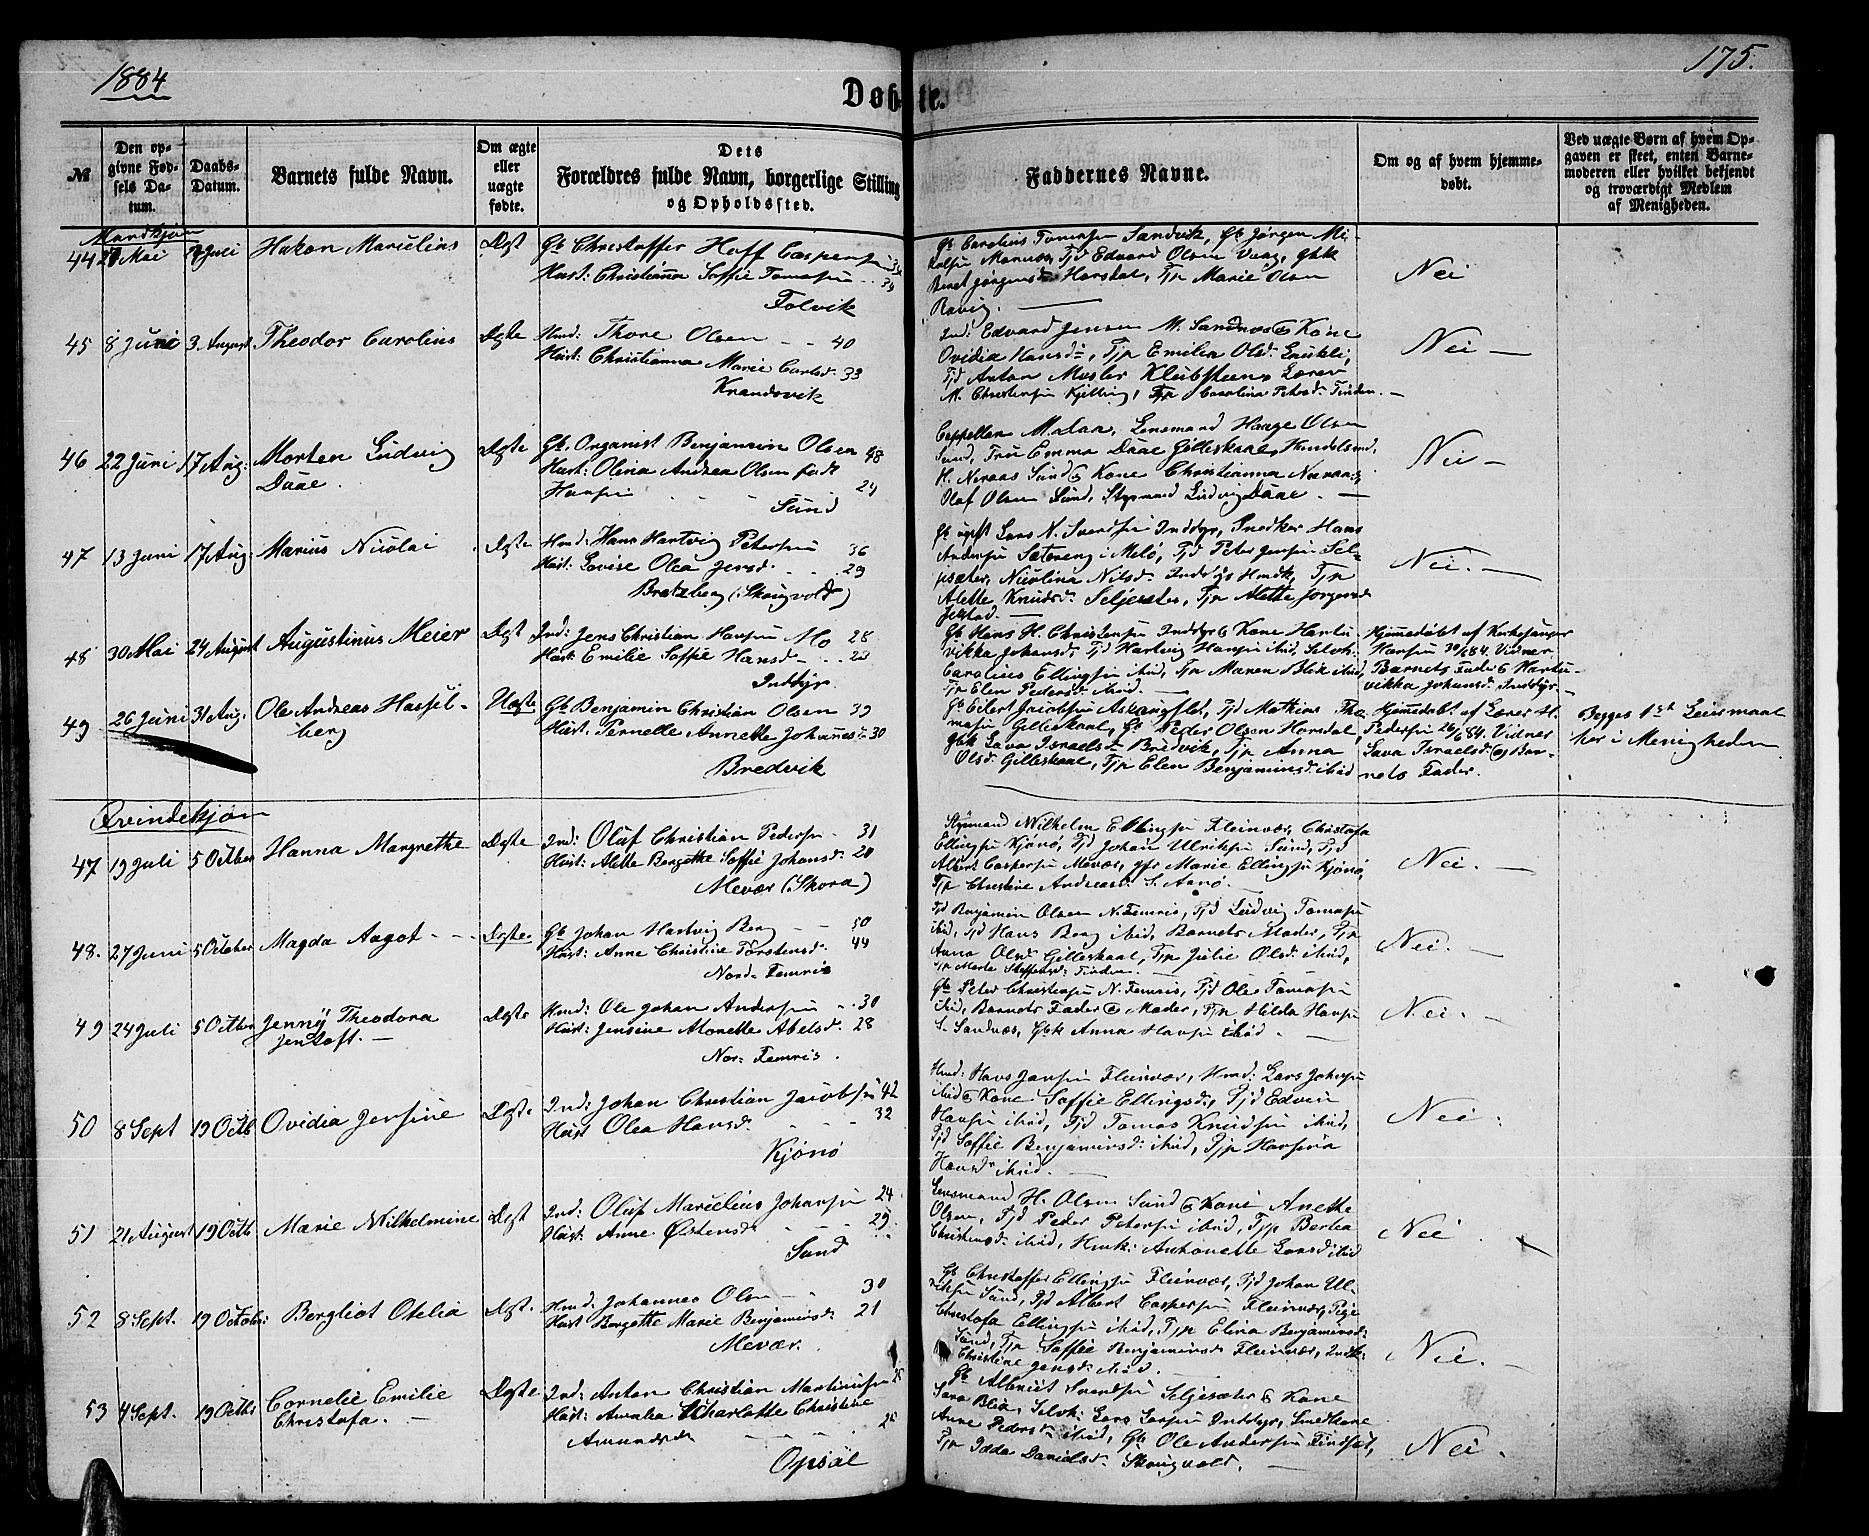 1884
175.
Døbte.
№
Den opgivne Fødsels Datum.
Daabs-Datum.
Barnets fulde Navn.
Om ægte eller uægte fødte.
Dets Forældres fulde Navn, borgerlige Stilling og Opholdssted.
Faddernes Navne.
Om og af hvem hjemmedøbt.
Ved uægte Børn af hvem Opgaven er skeet, enten Barnemoderen eller hvilket bekjendt og troværdigt Medlem af Menigheden.
Mandkjøn
44 Mai Juli Hakon Marcelius Ægt Gb Christoffer Hoff Caspersen
Hust: Christianna Soffie Tomassen
Tolvik
Gb Carolius Tomassen Sandvik, Gb Jørgen Mi-
Marnæs, Tjd Edvard Olsen Vaag, Gbk
Beret Jørgensd Horsdal, Tjp Marie Olsen
Nei
45 8 Juni 3. August Theodor Carolius Ægte Hmd: Thore Olsen - - 40
Hust: Christianna Marie Carlsd: 33
Krandsvik
Ind: Edvard Jensen M. Sandnæs & Kone
Ovidia Hansd:, Tjp Emilie Olsd.
Tjd Anton
M. Christensen Kjelling, Tjp Carolina Petersd: Finden. -
Nei -
46 22 Juni 17 Aug: Morten Ludvig
Daae.
Ægte Gb. Organist Benjamin Olsen 48
Hust: Olina Andrea Olsen født
Hansen 29
Sund
Cappellan M. Daae, Lensmand Haage Olsen
Sund, Fru Emma Daae Gilleskaal, Handelsmd.
H. Neraas Sund & Kone Christianna Neraas,
Olaf Olsen Sund, Styrmand Ludvig Daae. -
Nei -
47 13 Juni 17 Aug. Marius Nicolai Ægte Hmd: Hans Hartvig Petersen 36
Hust: Lovise Olea Jensd. 29
Bratsberg (Skaugvold)
Gb ugft Lars N. Svendsen Inddyr, Snedker Hans
Andersen Sætereng i Melø, Tjd Peter Jensen Sel-
jesæter, Nicolina Nilsd. Inddyr Hmdk, Tjp
Alette Knudsd. Seljesæter, Tjp Alette Jørgensd
Nei. -
48 30 Mai 24 August Augustinus Meier Ægt Ind: Jens Christian Hansen Mo 28
Hust. Emilie Soffie Hansd
Inddyr
Gb Hans H. Christensen Inddyr & Kone Hartu-
vikka Johansd. Tjd Hartvig Hansen ibid, Selvk.
Carolius Ellingsen ibid, Tjp Maren Blix ibid,
Tjp Elen Pedersd. ibid. -
Hjemmedøbt af Kirkesanger
Hansen 30/5 84. Vidner
Barnets Fader & Hartu-
vikka Johansd. Inddyr. -
49 26 Juni 31 Aug. Ole Andreas Hassel-
berg
Uægte Gb. Benjamin Christian Olsen 39
Hust. Pernelle Annette Johannesd: 30
Bredvik
Gb Edert Jacobsen, Tjd Mathias Tho-
masen Gilleskaal, Gb Peder Olsen Horsdal,
Gbk Sava Israelsd. Bredvik, Tjp Anna
Olsd. Gilleskaal, Tjp Elen Benjaminsd. ibid
Hjemmedøbt af Lærer H.
Pedersen 26/6 84. Vidner
Sava Israelsd. & Bar-
nets Fader.
Begges 1st Leiermaal
her i Menigheden
Qvindekjøn
47 19 Juli 5 October Hanna Margrethe Ægte Ind: Oluf Christian Pedersen - 31
Hust: Alette Bergitte Soffie Johansd. 20
Mevær (Skora)
Styrmand Wilhelm Ellingsen Fleinvær, Christofa
Ellingsen Kjønø, Tjd Johan Ulriksen Sund, Tjd
Albert Caspersen Mevær, Marie Ellingsen Kjønø,
Tjp Christine Andreasd: S. Arnø. -
Nei. -
48. 27 Juni 5 October Magda Aagot - - - Ægte - Gb. Johan Hartvig Berg - - 50
Hust: Anne Christine Torstensd: 44
Nord-Femris
Tjd Benjamin Olsen N. Femris, Tjd Ludvig Tomassen
ibid, Tjd Hans Berg ibid, Barnets Moder, Tjp
Anna Olsd Gilleskaal, Tjp Julie Olsd: ibid,
Tjp Marta Steffensd: Finden. -
Nei. -
49 24 Juli 5 Octbr Jenny Theodora
Jentoft. -
Ægte Hmd: Ole Johan Andersen - . 30
Hust: Jensine Alonette Abelsd. 28
Nor: Femris.
Gb Peter Christensen N. Femris, Tjd Ole Tomassen
ibid, Barnets Fader & Moder, Tjp Hilda Hansen
S. Sandnæs, Gbk Anna Hansen ibid. -
Nei. -
50 8 Sept 19 Octb Ovidia Jensine Ægte Ind: Johan Christian Jacobsen 42
Hust Olea Hansd. 32
Kjønø
Hmd: Hans Jansen Fleinvær, Hmd: Lars Johnsen
ibid & Kone Soffie Ellingsd, Tjd Edvin
Hansen ibid, Tjd Tomas Knudsen ibid,
Tjd Soffie Benjaminsd. ibid, Tjp Hansina
Hansdr ibid. -
Nei.
51 21 August 19 Octb Marie Wilhelmine Ægt Ind: Oluf Marcelius Johansen 24
Hust: Anne Østensd 29.
Sund
Lensmand H. Olsen Sund & Kone Anette
Olsen, Tjd Peder Petersen ibid, Tjp Berta
Christensd. ibid, Hmk: Antonette Larsd ibid
Nei.
52 8 Sept. 19 October: Bergliot Otelia Ægt. Hmd. Johannes Olsen - - 30
Hust Bergitte Marie Benjaminsd. 21
Mevær.
Gb Christoffer Ellingsen Fleinvær, Tjd Johan Ul-
riksen Sund, Tjd Albert Caspersen Fleinvær, Pige
Christofa Ellingsen ibid, Tjp Elina Benjaminsd.
Sund, Tjp Soffie Benjaminsd Fleinvær, Indk:
Christine Jensd. ibid.
Nei. -
53 4 Sept. 19 Octbr Cornelie Emilie
Christofa. -
Ægte Ind: Anton Christian Martinussen
Hust: Amalia Charlotte Christine
Amundsd 25
Opsal
Gb Albrigt Svendsen Seljesæter & Kone
Sara Blix, Selvk: Lars Larsen Inddyr, Smedkone
Anne Pedersd ibid, Gb Ole Andersen Findset,
Tjp Idda Danielsd. Skaugvold. -
Nei.